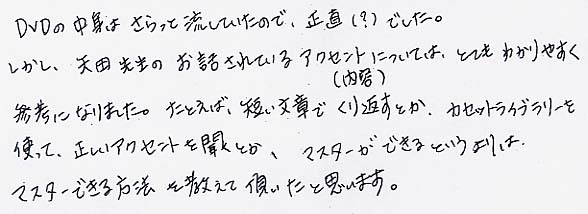 DVDの中身はさらっと流していたので、正直(?)でした。
しかし、矢田先生のお話されているアクセントについては、とてもわかりやすく
(内容)
参考になりました。たとえば、短い文章でくり返すとか、カセットライブラリーを
使って、正しいアクセントを聞くとか、マスターができるというよりは、
マスターできる方法を教えて頂いたと思います。